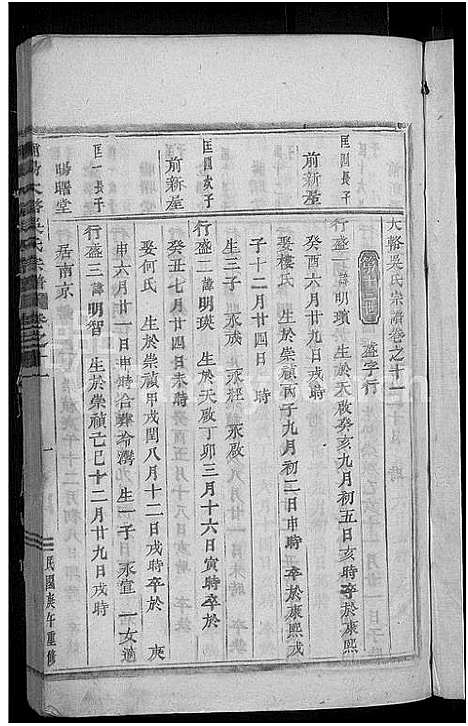 大路吳氏宗譜卷之十一
盛字行
匡四長子
前新屋
行盛一 諱明瓚 生於天啟癸亥九月初五日亥時卒於康熙
癸酉六月廿九日戌時
娶樓氏 生於崇禎丙子九月初二日申時 卒於康熙戊
子十二月廿四日 時
生三子 永 永經 永啟
匡四次子
前新屋
行盛二 諱明瑛 生於天啟丁卯三月十六日寅時卒於
癸丑七月廿四日未時
娶何氏 生於崇禎甲戌閏八月十二日戌時卒於 庚
申六月廿一日申時合葬 灣 生一子 永宣 一女適
匡一長子
暘曙堂 居南京
行盛三 諱明智 生於崇禎己巳十二月廿九日戌時
吳氏宗譜
卷之十一
一
民國庚午重修